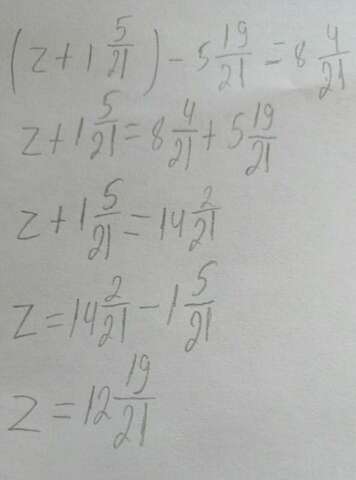 (z + 1 5/21) - 5 19/21 = 8 4/21
z + 1 5/21 = 8 4/21 + 5 19/21
z + 1 5/21 = 14 2/21
z = 14 2/21 - 1 5/21
z = 12 19/21